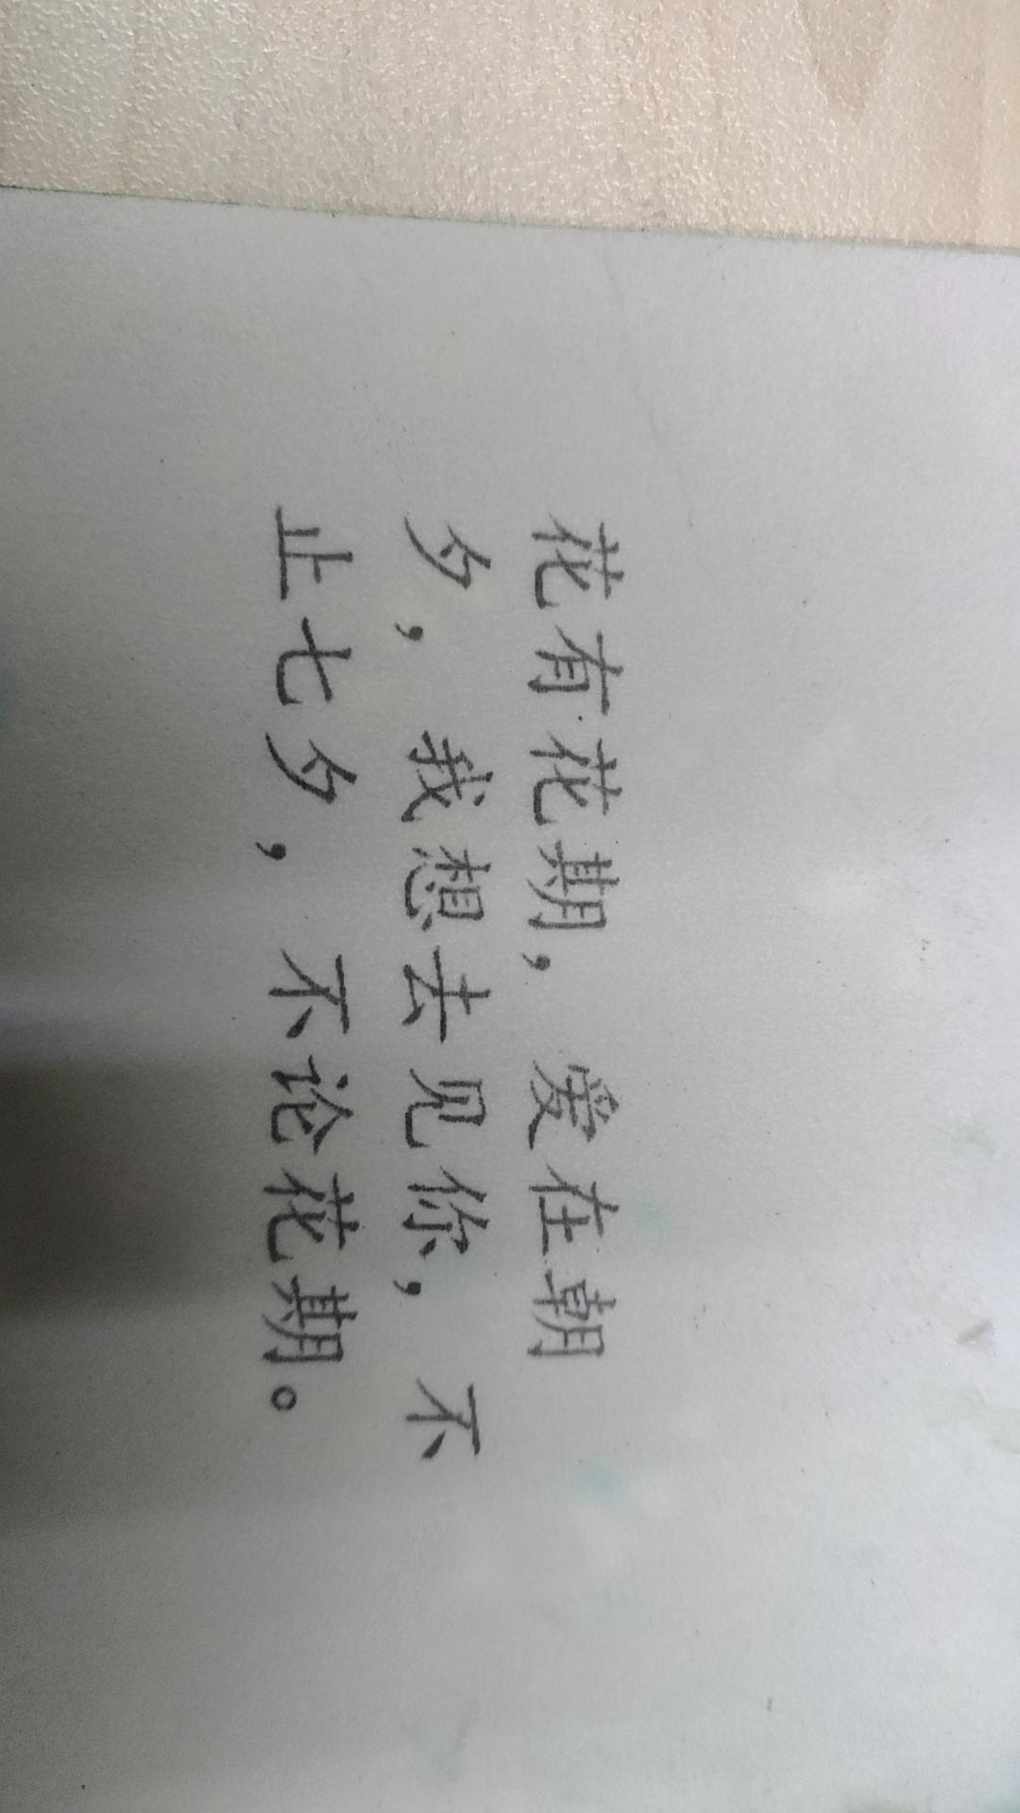 花有花期，爱在朝
夕，我想去见你，不
止七夕，不论花期。